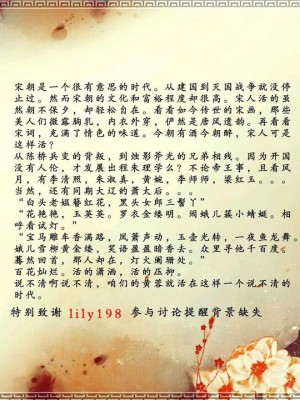 宋朝是一个很有意思的时代。从建国到灭国战争就没停
止过。然而宋朝的文化和富裕程度却很高。宋人活的虽
然朝不保夕，却轻松自在。看看如今传世的宋画，那些
美人们微露胸乳，内衣外穿，伊然是唐风遗韵。再看看
宋词，充满了情色的味道。今朝有酒今朝醉，宋人可是
这样活？
从陈桥兵变的背叛，到烛影斧光的兄弟相残。因为开国
没有人伦，才发展出程朱理学么？不论帝王事，且看风
月，有李清照，朱淑真，黄婉，李师师，梁红玉。。。
当然，还有同期大辽的萧太后。。。
“白头老媪簪红花，黑头女郎三髻丫”
“花艳艳，玉英英。罗衣金缕明。闹蛾儿簇小蜻蜓。相
呼看试灯。”
“宝马雕车香满路，凤箫声动，玉壶光转，一夜鱼龙舞。
蛾儿雪柳黄金缕，笑语盈盈暗香去。众里寻他千百度，
蓦然回首，那人却在，灯火阑珊处。”
百花灿烂。活的潇洒，活的压抑。
说不清啊说不清，咱们的黄蓉就活在这样一个说不清的
时代。
特别致谢 lily198 参与讨论提醒背景缺失